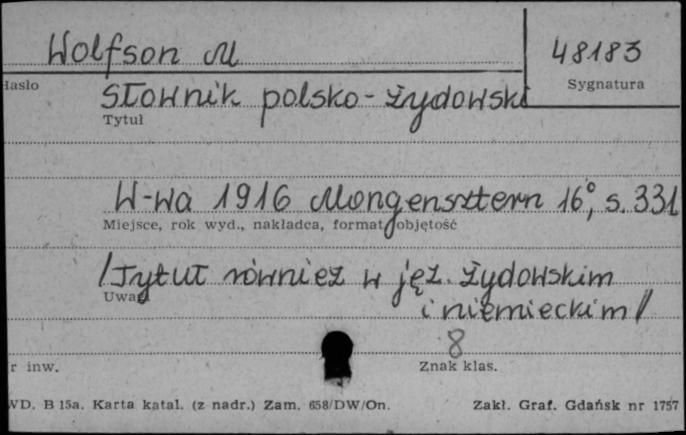 Wolfson M
48183
Hasło
Sygnatura
Słownik polsko-żydowski
Tytuł
W-wa 1916 Morgensztern 16°, s. 331
Miejsce, rok wyd., nakładca, format, objętość
/Tytuł również w jęz. żydowskim
Uwagi
i niemieckim/
8
r inw.
Znak klas.
WD. B 15a. Karta katal. (z nadr.) Zam. 658/DW/On.
Zakł. Graf. Gdańsk nr 1757